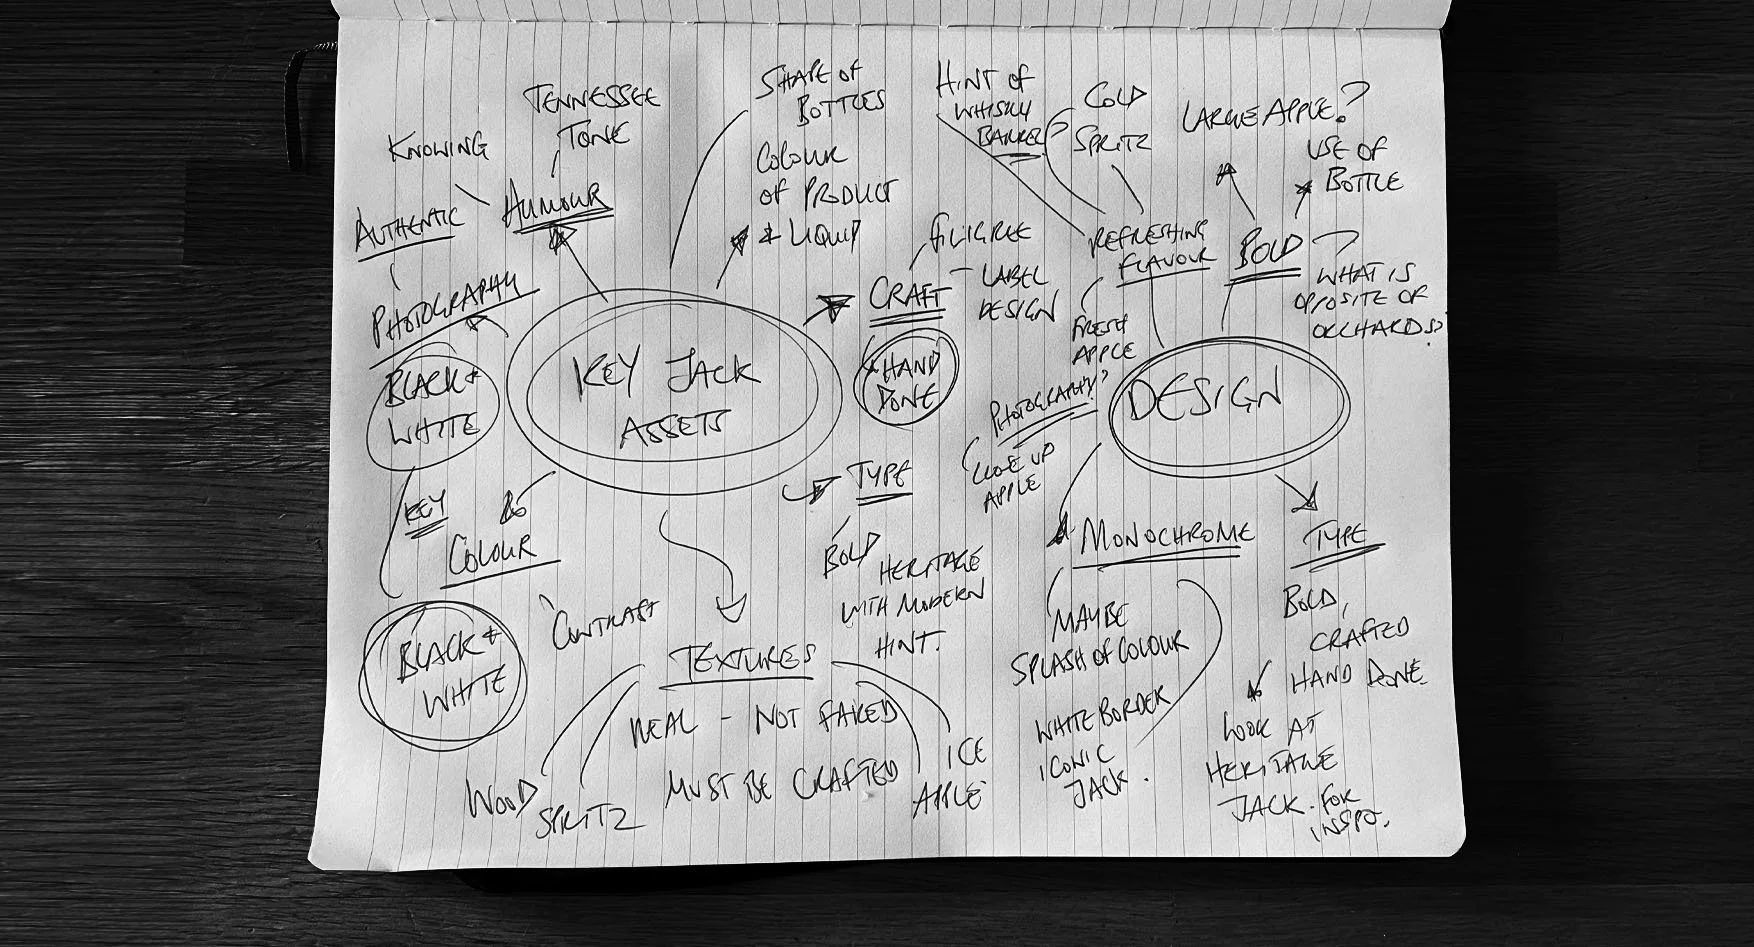 TENNESSEE
TONE
KNOWING
HUMOUR
AUTHENTIC
PHOTOGRAPHY
BLACK +
WHITE
KEY
COLOUR
CONTRAST
BLACK +
WHITE
KEY JACK
ASSETS
SHAPE OF
BOTTLES
COLOUR
OF PRODUCT
+ LIQUID
FILIGREE
CRAFT
LABEL
DESIGN
HAND
DONE
TYPE
BOLD
HERITAGE
WITH MODERN
HINT.
TEXTURES
REAL - NOT FAKED
MUST BE CRAFTED
WOOD
SPRITZ
ICE
APPLE
HINT OF
WHISKY
BARREL?
COLD
SPRITZ
REFRESHING
FLAVOUR
FRESH
APPLE
LARGE APPLE?
USE OF
BOTTLE
BOLD
WHAT IS
OPPOSITE OF
ORCHARDS?
DESIGN
PHOTOGRAPHY?
CLOSE UP
APPLE
MONOCHROME
MAYBE
SPLASH OF COLOUR
WHITE BORDER
ICONIC
JACK.
TYPE
BOLD,
CRAFTED
HAND DONE.
LOOK AT
HERITAGE
JACK. FOR
INSPO.